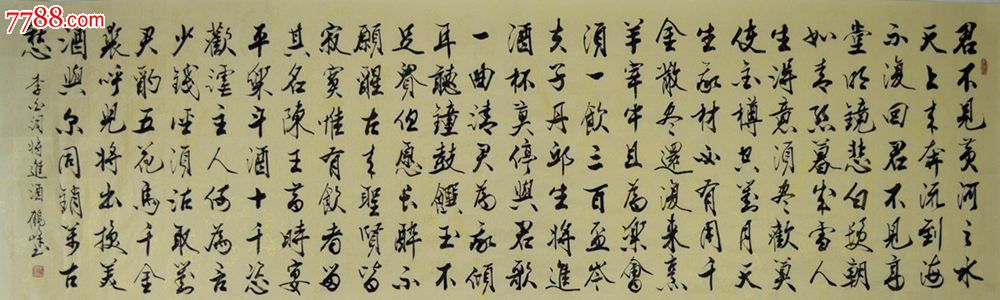 君不見黃河之水
天上來奔流到海
不復回君不見高
堂明鏡悲白髮朝
如青絲暮成雪人
生得意須盡歡莫
使金樽空對月天
生我材必有用千
金散盡還復來烹
羊宰牛且為樂會
須一飲三百盃岑
夫子丹邱生將進
酒杯莫停與君歌
一曲請君為我傾
耳聽鐘鼓饌玉不
足貴但願長醉不
願醒古來聖賢皆
寂寞惟有飲者留
其名陳王昔時宴
平樂斗酒十千恣
歡謔主人何為言
少錢徑須沽取對
君酌五花馬千金
裘呼兒將出換美
酒與爾同銷萬古
愁 李白詞將進酒
7788.com
中国收藏热线